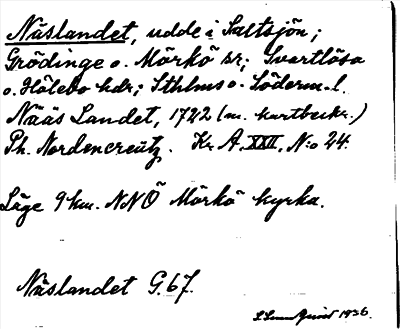 Näslandet, udde i Saltsjön;
Grödinge o. Mörkö sr; Svartlösa
o. Hölebo hdr; Sthlms o. Söderm. l.
Nääs Landet, 1722 (m. kartbeskr.)
Ph. Nordencreütz. Kr. A. XXII, N:o 24.
Läge 9 km. NNÖ Mörkö kyrka.
Näslandet G. 67.
1936.